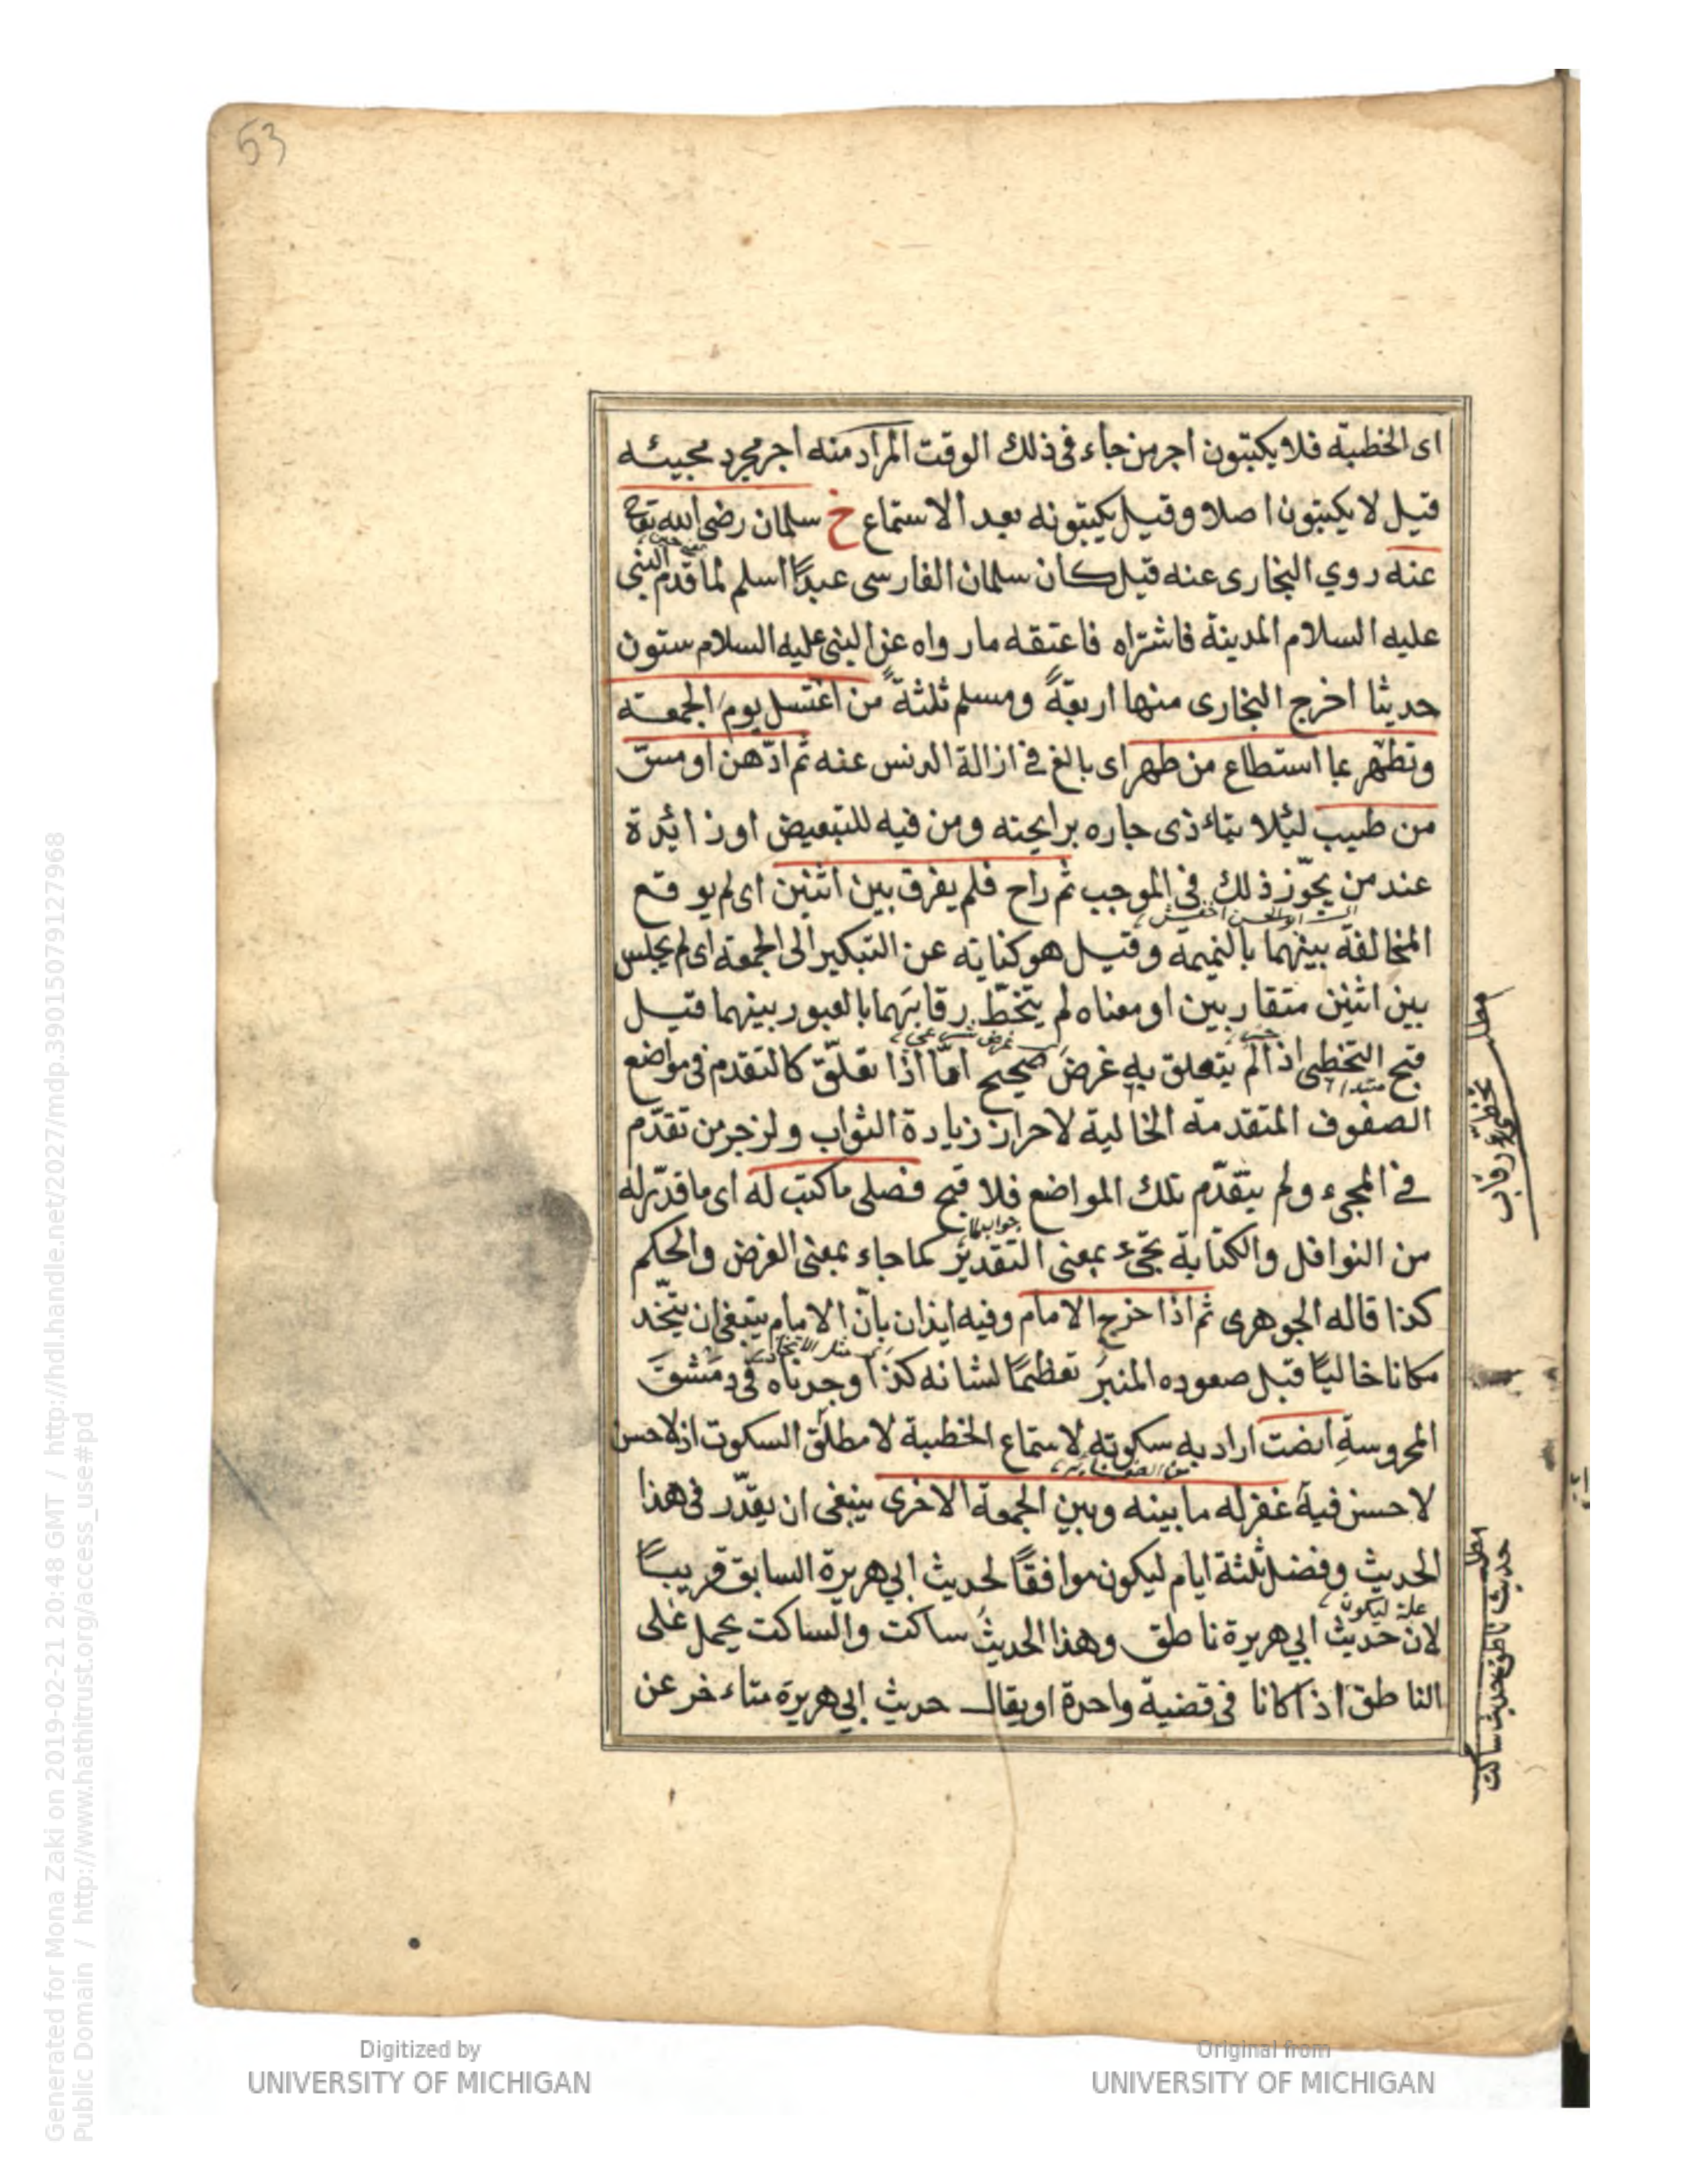 53
اى الخطبة فلا يكتبون اجر من جاء فى ذلك الوقت المراد منه اجر مجرد مجيئه
قيل لا يكتبون اصلا وقيل يكتبونه بعد الاستماع خ سلمان رضى الله تعالى
عنه روي البخارى عنه قيل كان سلمان الفارسى عبدًا اسلم لما قدم النبى
عليه السلام المدينة فاشتراه فاعتقه ما رواه عن النبى عليه السلام ستون
حديثا اخرج البخارى منها اربعةً ومسلم ثلثةً من اغتسل يوم الجمعة
وتطهّر بما استطاع من طهر اى بالغ فى ازالة الدنس عنه ثم ادّهن او مسّ
من طيب لئلا يتاءذى جاره برايحته ومن فيه للتبعيض او زائدة
عند من يجوّز ذلك فى الموجب ثم راح فلم يفرق بين اثنين اى لم يوقع
المخالفة بينهما بالنميمة وقيل هو كناية عن التبكير الى الجمعة اى لم يجلس
بين اثنين متقاربين او معناه لم يتخطّ رقابَهما بالعبور بينهما قيل
قبح التخطى اذا لم يتعلق به غرض صحيح امّا اذا تعلّق كالتقدم فى مواضع
الصفوف المتقدمة الخالية لاحراز زيادة الثواب ولزجر من تقدّم
فى المجىء ولم يتقدّم تلك المواضع فلا قبح فصلى ما كتب له اى ما قدّر له
من النوافل والكتابة تجىء بمعنى التقدير كما جاء بمعنى الفرض والحكم
كذا قاله الجوهرى ثم اذا خرج الامام وفيه ايذان بانّ الامام ينبغى ان يتّخذ
مكانا خاليًا قبل صعوده المنبرَ تعظيمًا لشانه كذا وجدناه فى دمشقَ
المحروسةِ انصت اراد به سكوته لاستماع الخطبة لا مطلق السكوت اذ لا حسن
لا حسن فيه غفر له ما بينه وبين الجمعة الاخرى ينبغى ان يقدّر فى هذا
الحديث وفضل ثلثة ايام ليكون موافقًا لحديث ابي هريرة السابق قريبًا
علة ليكون
لان حديث ابي هريرة ناطق وهذا الحديث ساكت والساكت يحمل على
الناطق اذا كانا فى قضية واحدة او يقال حديث ابي هريرة متاءخر عن
مطلب
رقاب
مطلب
حديث ناطق حديث ساكت
Digitized by
UNIVERSITY OF MICHIGAN
Original from
UNIVERSITY OF MICHIGAN
Generated for Mona Zaki on 2019-02-21 20:48 GMT / http://hdl.handle.net/2027/mdp.39015079127968
Public Domain / http://www.hathitrust.org/access_use#pd